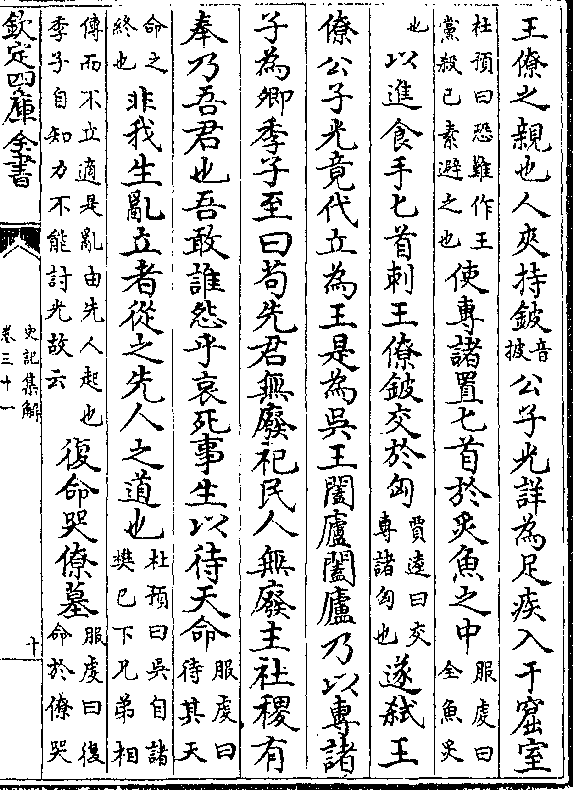 王僚之親也人夾持鈹音披公子光詳為足疾入于窟室
杜預曰恐難作王黨殺己素避之也使專諸置匕首於炙魚之中服虔曰全魚炙
也以進食手匕首刺王僚鈹交於匈賈逵曰交專諸匈也遂弒王
僚公子光竟代立為王是為吳王闔廬闔廬乃以專諸
子為卿季子至曰苟先君無廢祀民人無廢主社稷有
奉乃吾君也吾敢誰怨乎哀死事生以待天命服虔曰待其天
命之終也非我生亂立者從之先人之道也杜預曰吳自諸樊已下兄弟相
傳而不立適是亂由先人起也季子自知力不能討光故云復命哭僚墓服虔曰復命於僚哭
欽定四庫全書
史記集解
卷三十一
十